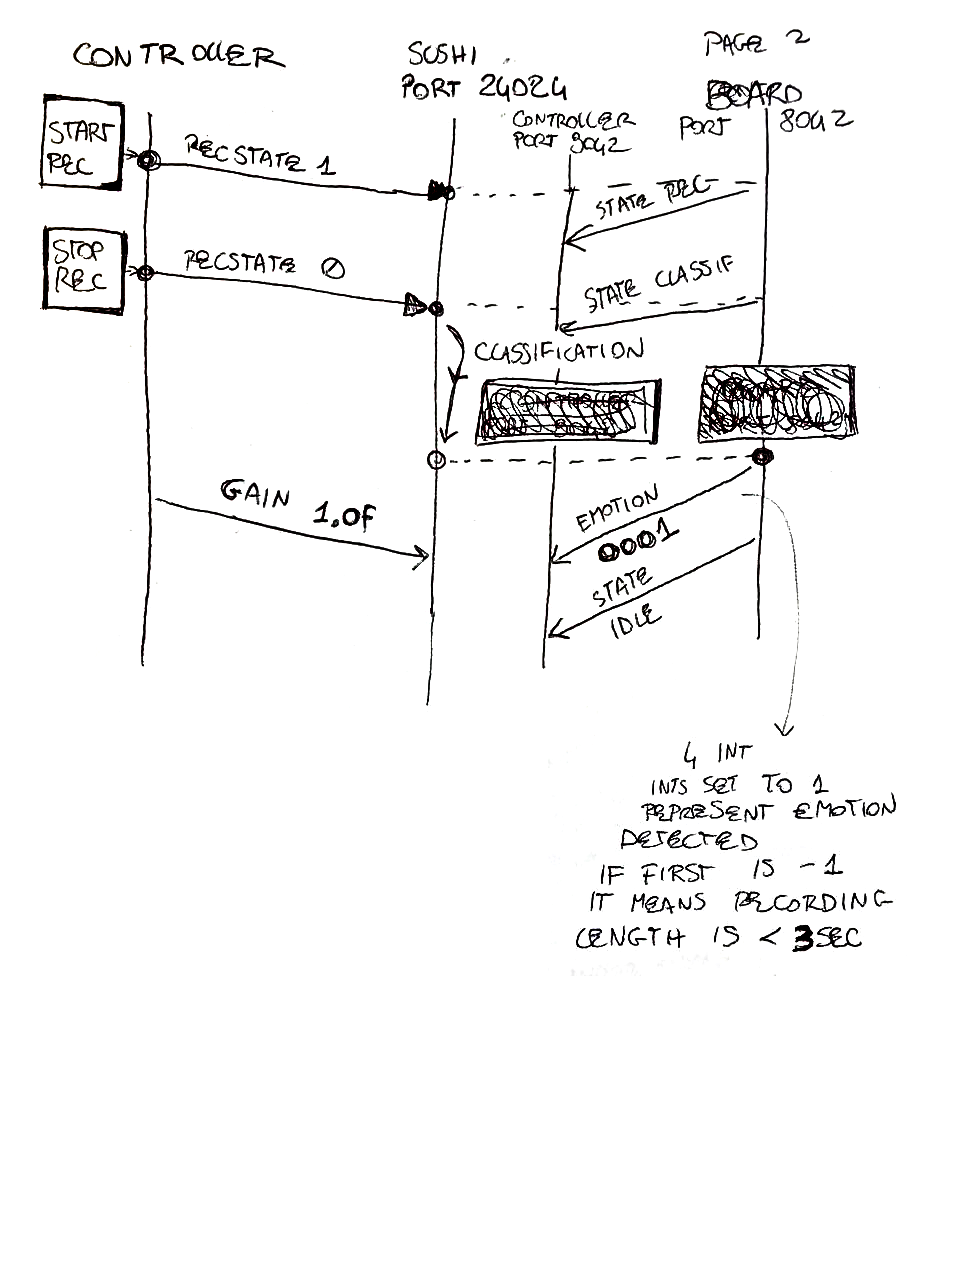 PAGE 2
CONTROLLER
SUSHI
PORT 24024
CONTROLLER
PORT 8042
BOARD
PORT 8042
START
REC
RECSTATE 1
STATE REC
STOP
REC
RECSTATE 0
STATE CLASSIF
CLASSIFICATION
GAIN 1.0F
EMOTION
0001
STATE
IDLE
4 INT
INTS SET TO 1
REPRESENT EMOTION
DETECTED
IF FIRST IS -1
IT MEANS RECORDING
LENGTH IS < 3SEC